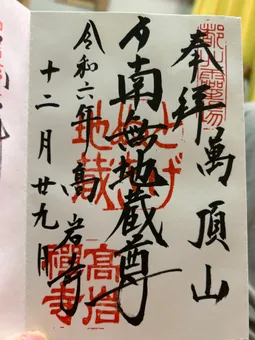 奉拝
萬頂山
南無地蔵尊
とげ
地蔵
高岩寺
令和六年
十二月廿九日
高岩
禅寺